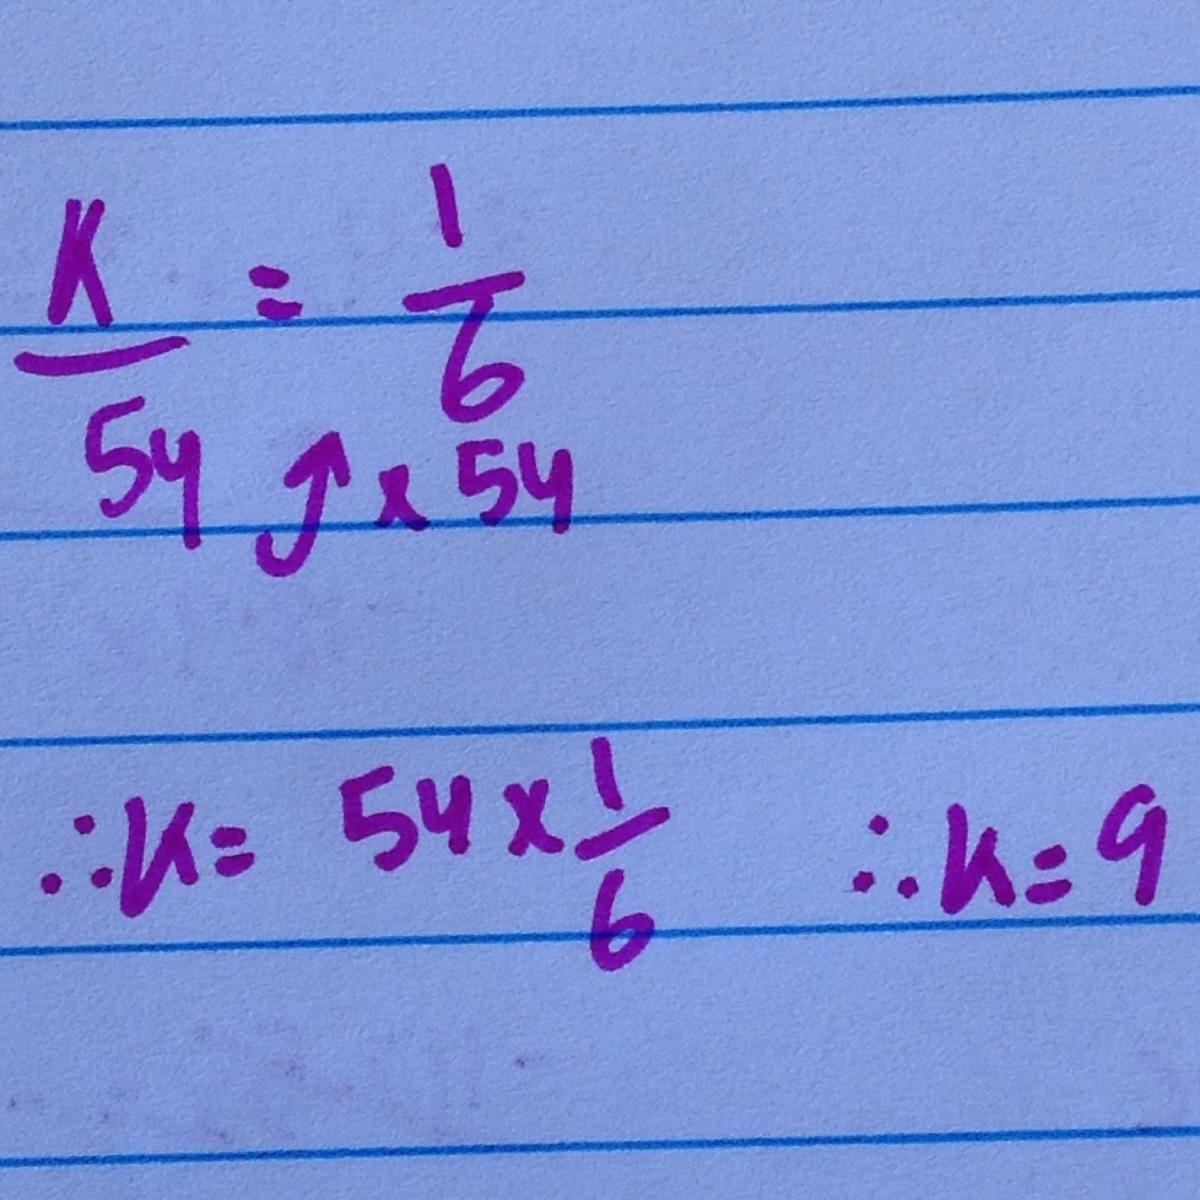 K/54 = 1/6
⤴ x 54
∴ K = 54 x 1/6 ∴ K = 9